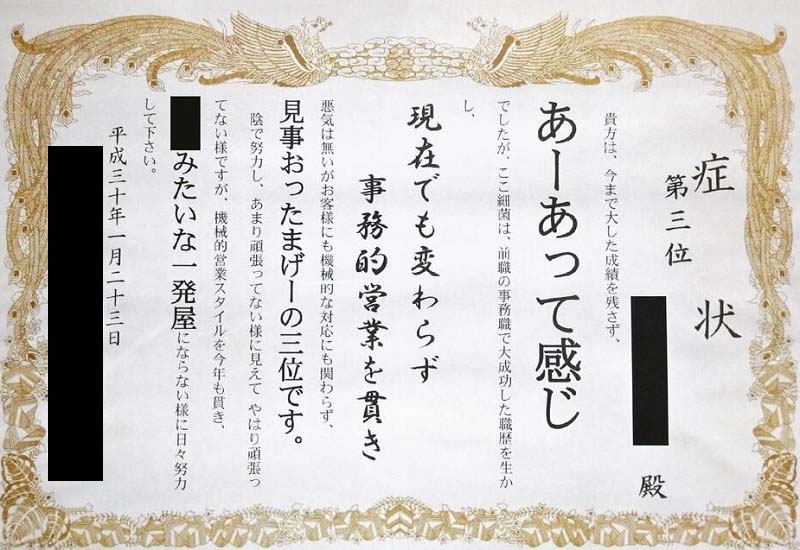 症状
第三位
殿
貴方は、今まで大した成績を残さず、
あーあって感じ
でしたが、ここ細菌は、前職の事務職で大成功した職歴を生か
し、
現在でも変わらず
事務的営業を貫き
悪気は無いがお客様にも機械的な対応にも関わらず、
見事おったまげーの三位です。
陰で努力し、あまり頑張ってない様に見えて やはり頑張っ
てない様ですが、機械的営業スタイルを今年も貫き、
みたいな一発屋にならない様に日々努力
して下さい。
平成三十年一月二十三日